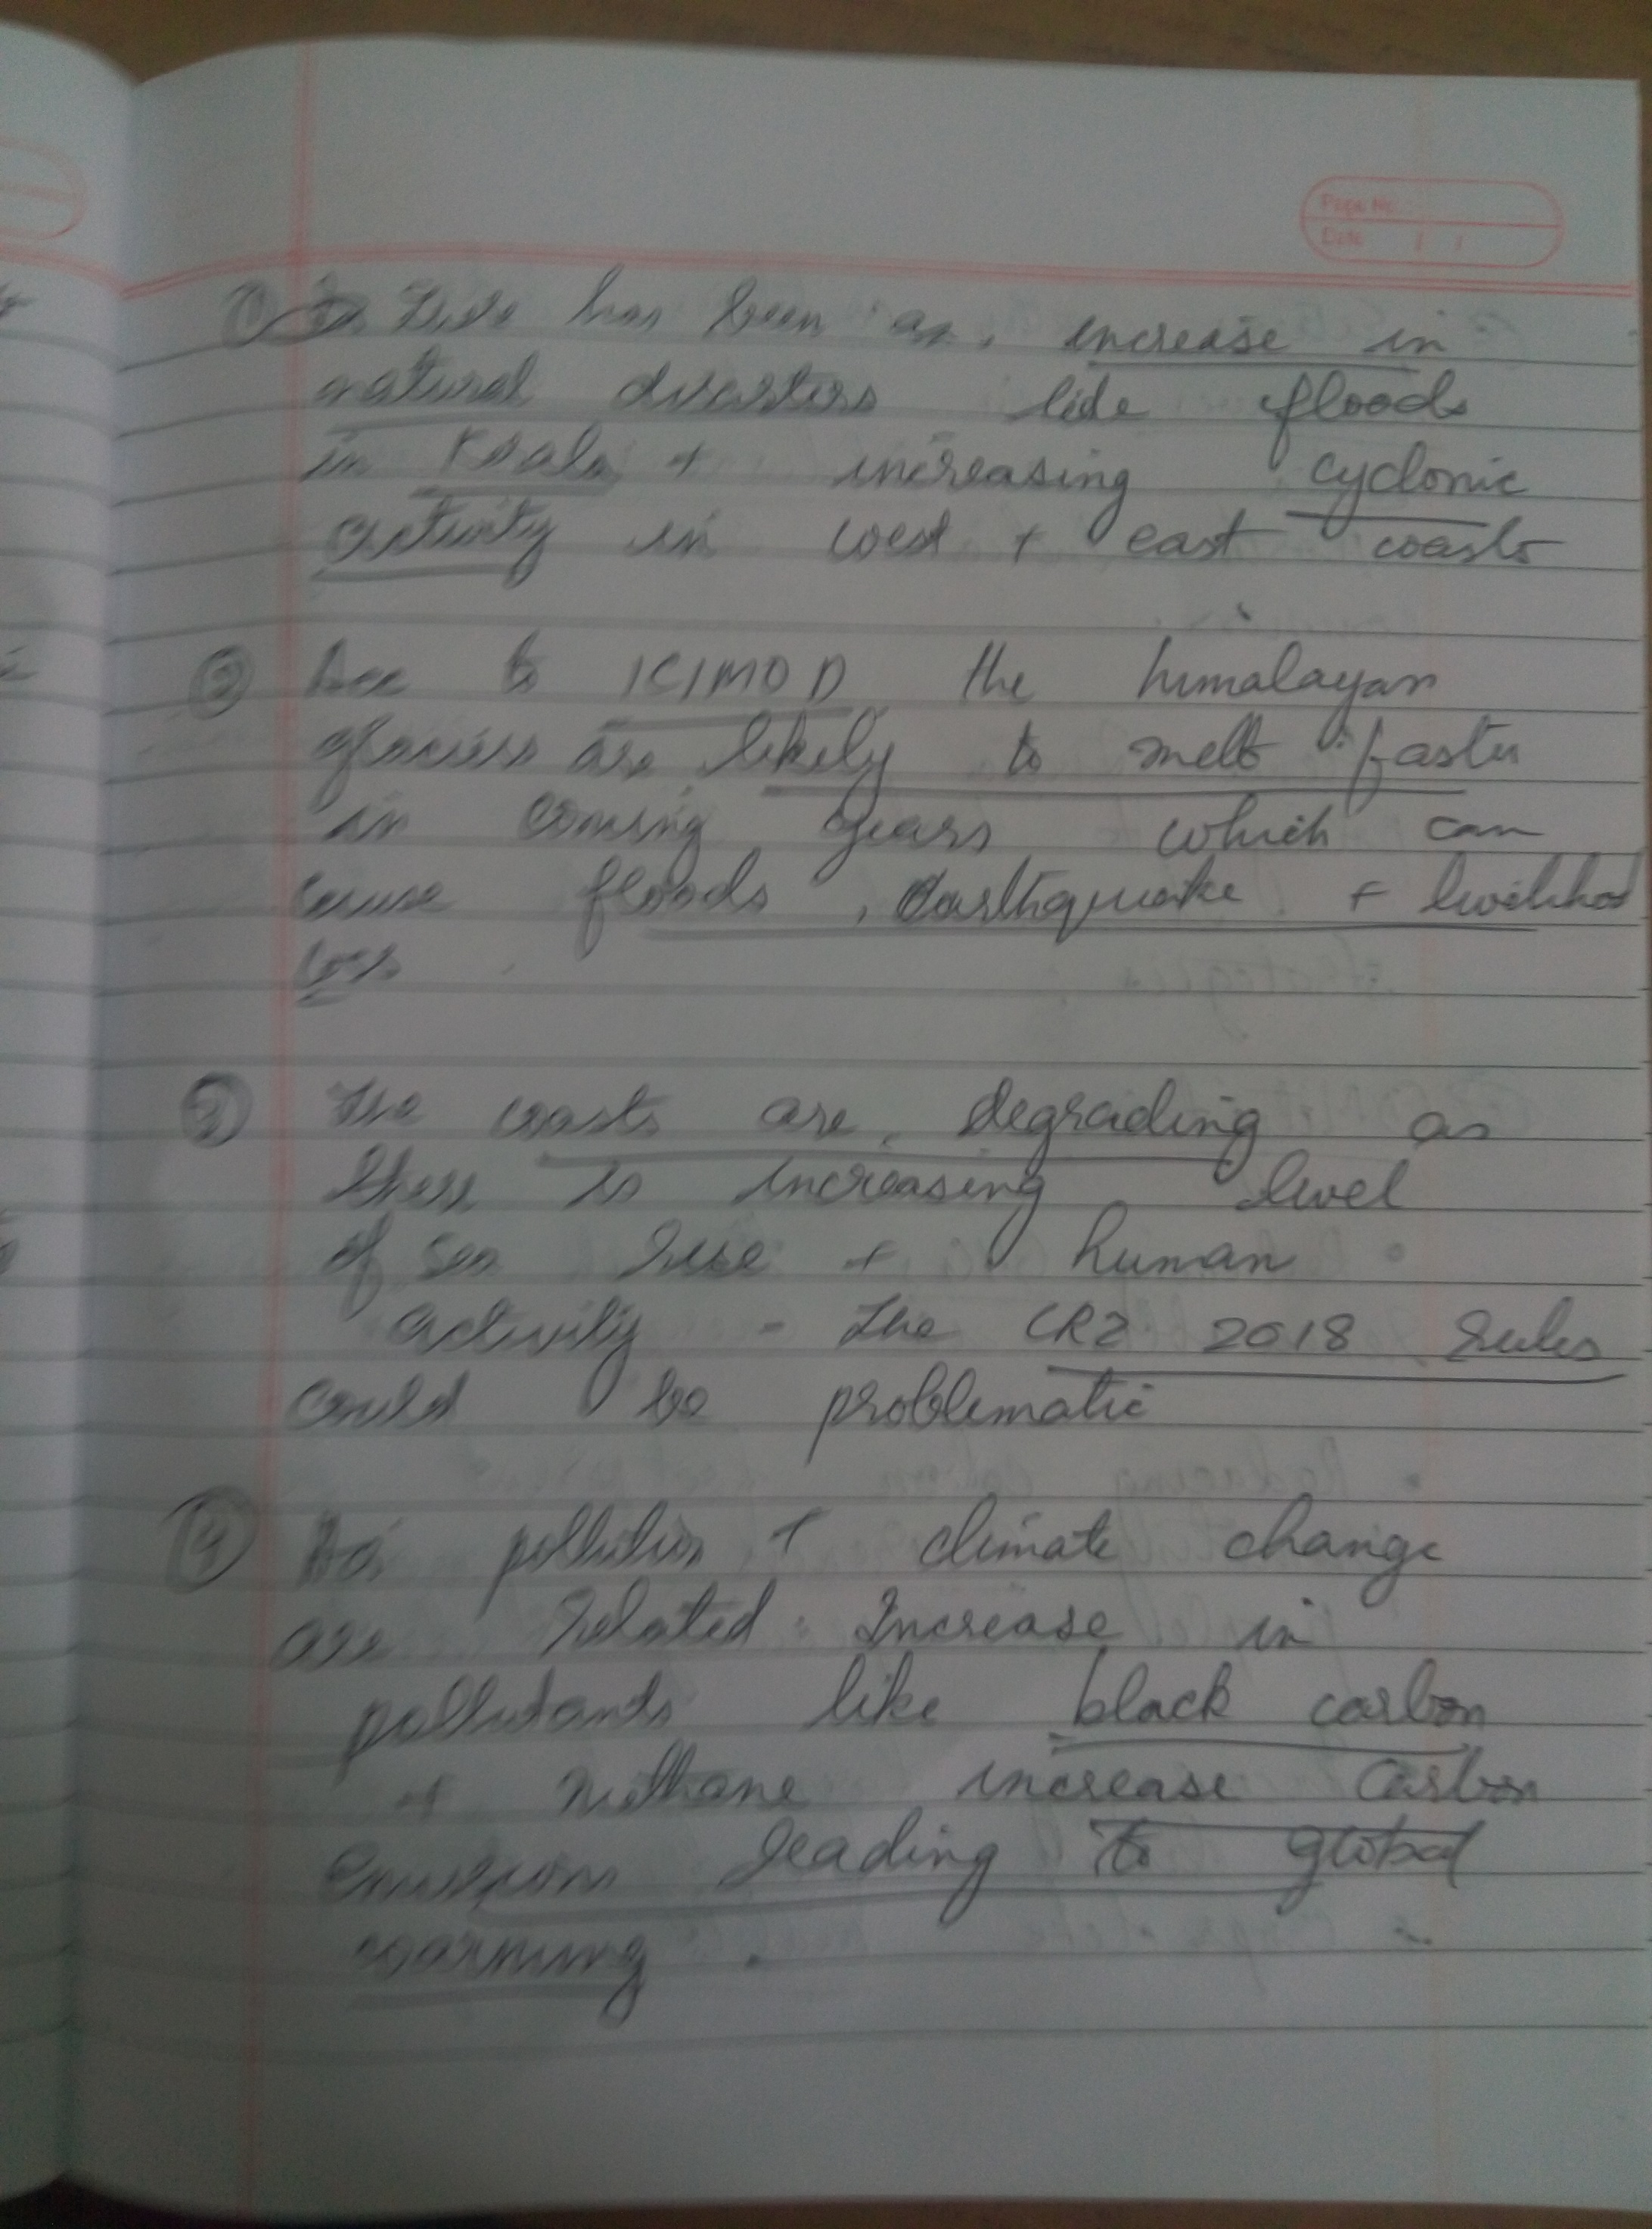 Page No.
Date / /
① There has been an increase in
natural disasters like floods
in Kerala + increasing cyclonic
activity in west + east coasts
② Acc to ICIMOD the himalayan
glaciers are likely to melt faster
in coming years which can
cause floods, earthquake + livelihood
loss
③ The coasts are degrading as
there is increasing level
of sea rise + human
activity - The CRZ 2018 rules
could be problematic
④ Air pollution + climate change
are related. Increase in
pollutants like black carbon
+ methane increase carbon
emissions leading to global
warming.